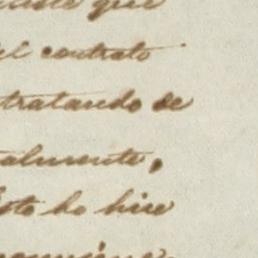 que
el contrato
tratando de
almente,
Esto lo hice